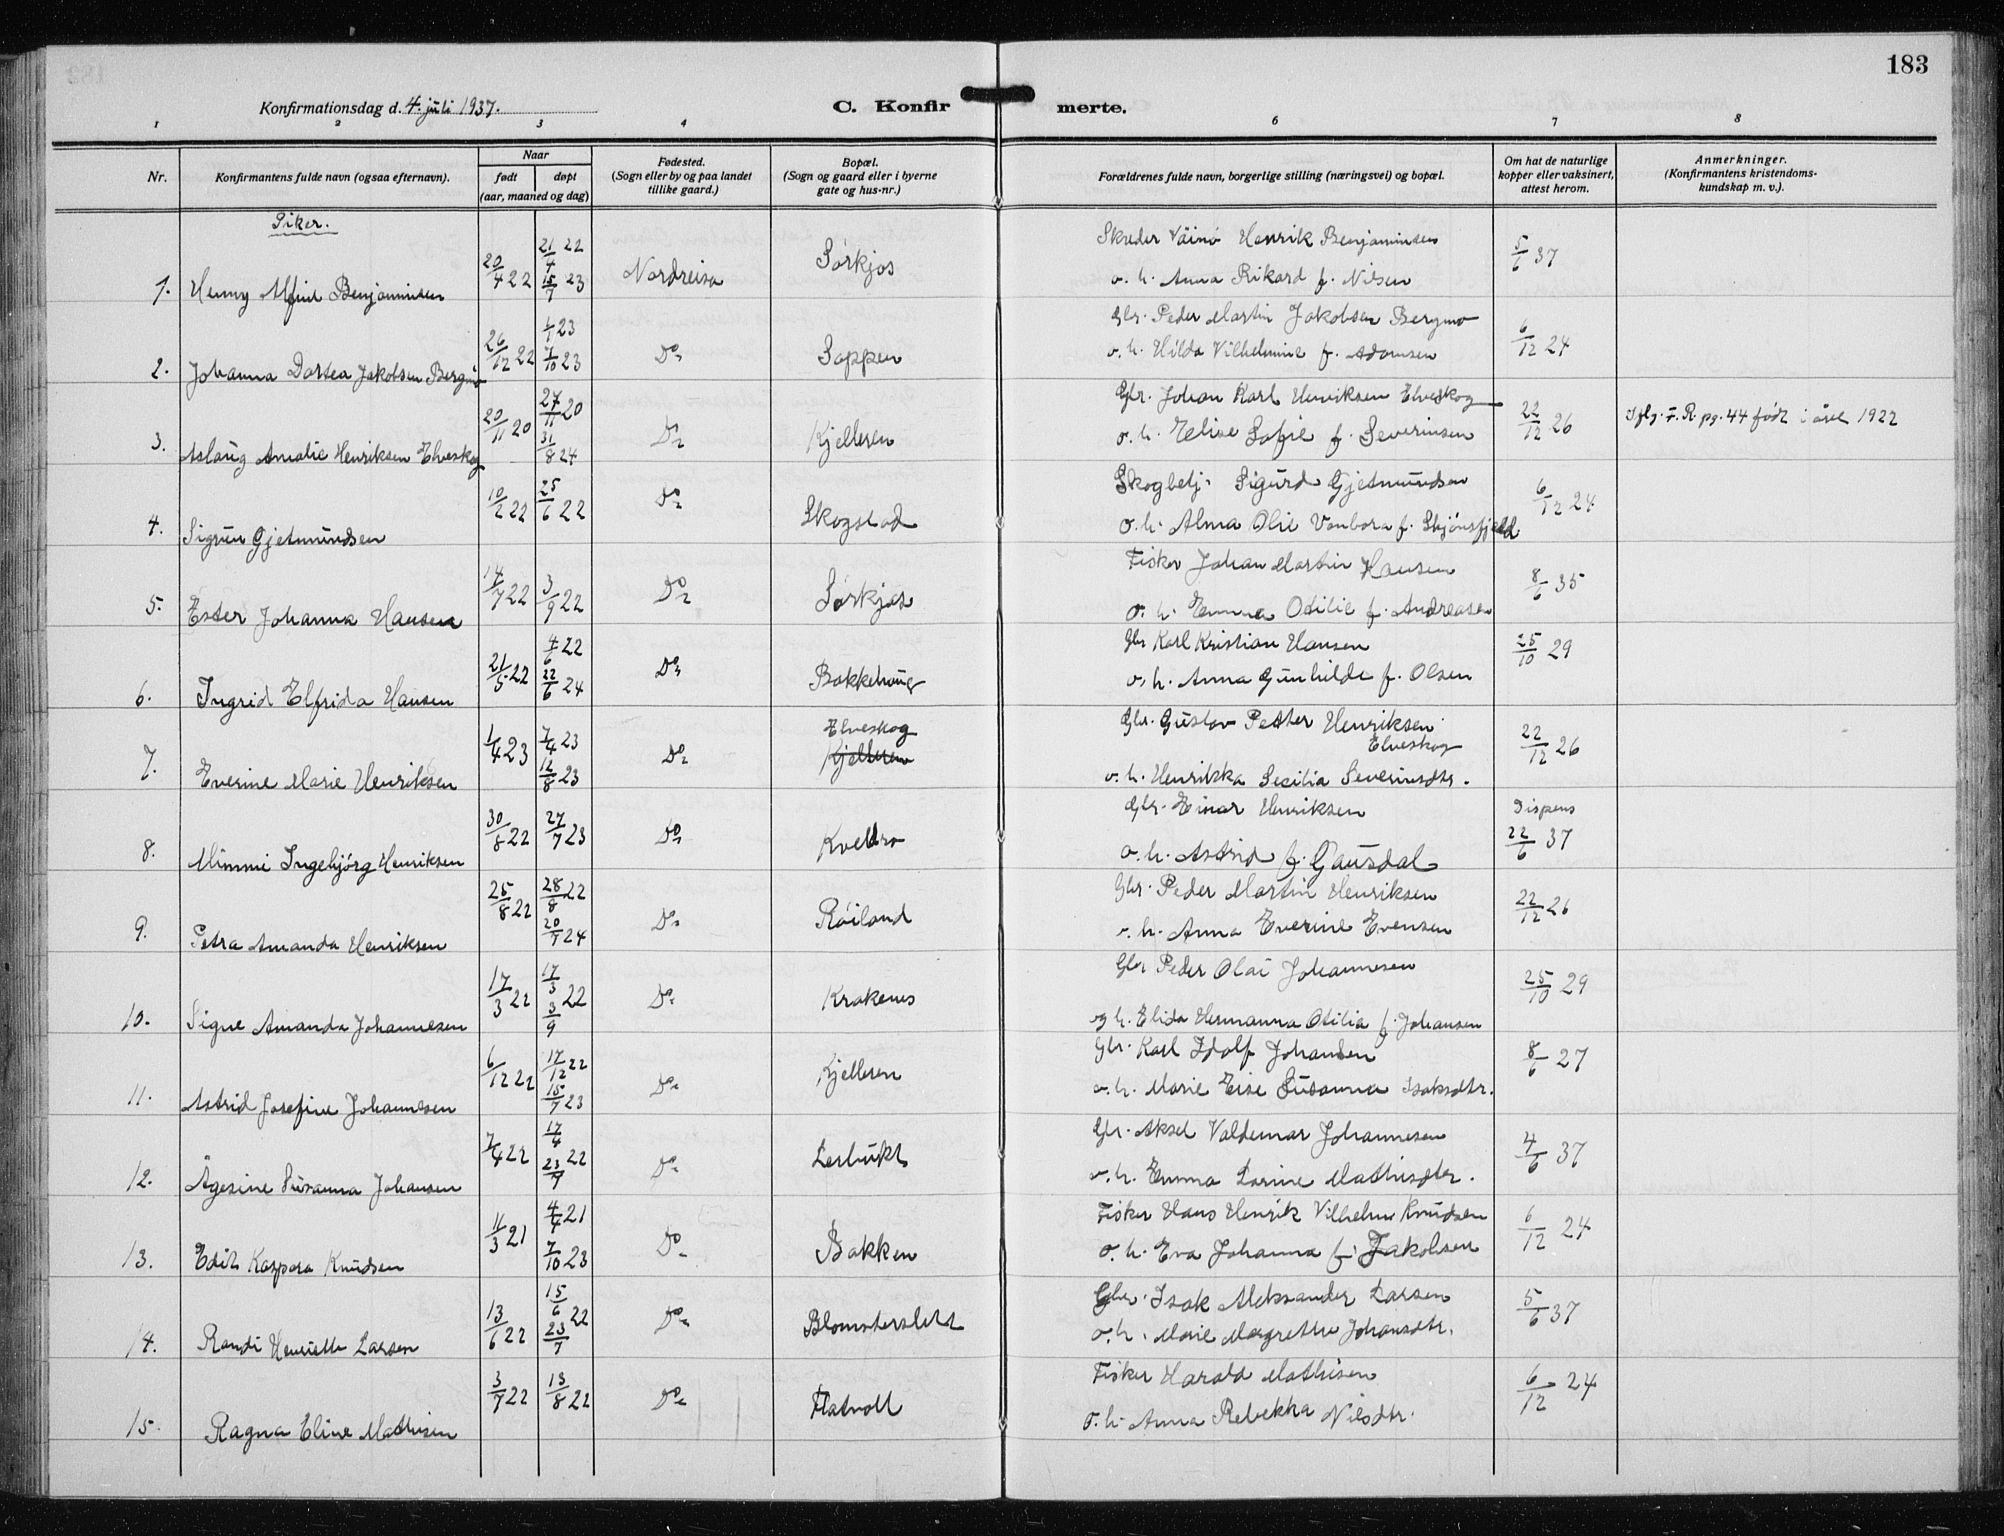 183
Konfirmationsdag d. 4. juli 1937.
C. Konfirmerte.
1 2 3 4 5 6 7 8
Nr.
Konfirmantens fulde navn (ogsaa efternavn).
Naar
født
døpt
(aar, maaned og dag)
Fødested.
(Sogn eller by og paa landet
tillike gaard.)
Bopæl.
(Sogn og gaard eller i byerne
gate og hus-nr.)
Forældrenes fulde navn, borgerlige stilling (næringsvei) og bopæl.
Om hat de naturlige
kopper eller vaksinert,
attest herom.
Anmerkninger.
(Konfirmantens kristendoms-
kundskap m. v.).
Piker.
1. Henny Alfine Benjaminsen 20/4 22 21/4 22 15/7 23 Nordreisa Sørkjos
Skreder Väinö Henrik Benjaminsen
o. h. Anna Rikard f. Nilsen
5/6 37
2. Johanna Dortea Jakobsen Bergmo 26/12 22 1/1 23 7/10 23 Do Sappen
Gbr. Peder Martin Jakobsen Bergmo
o. h. Hilda Vilhelmine f. Adamsen
6/12 24
3. Aslaug Amalie Henriksen Elveskog 20/11 20 27/11 20 31/8 24 Do Kjelleren
Gbr. Johan Karl Henriksen Elveskog
o. h. Elise Sofie f. Severinsen
22/12 26
Iflg. F. R. pg. 44 født i året 1922
4. Sigrun Gjetmundsen 10/2 22 25/6 22 Do Skogstad
Skogbetj. Sigurd Gjetmundsen
o. h. Alma Olie Vonbora f. Skjønsfjell
6/12 24
5. Ester Johanna Hansen 14/7 22 3/9 22 Do Sørkjos
Fisker Johan Martin Hansen
o. h. Emma Otilie f. Andreasen
8/6 35
6. Ingrid Elfrida Hansen 21/5 22 4/6 22 22/6 24 Do Bakkehaug
Gbr Karl Kristian Hansen
o. h. Anna Gunhilde f. Olsen
25/10 29
7. Everine Marie Henriksen 1/4 23 7/4 23 12/8 23 Do Elveskog
Kjelleren
Gbr. Gustav Petter Henriksen
Elveskog
o. h. Henrikka Secilia Severinsdtr.
22/12 26
8. Mimmi Ingebjørg Henriksen 30/8 22 27/7 23 Do Kveldro
Gbr. Einar Henriksen
o. h. Astrid f. Gausdal
Dispens
22/6 37
9. Petra Amanda Henriksen 25/8 22 28/8 22 20/7 24 Do Røiland
Gbr. Peder Martin Henriksen
o. h. Anna Everine Evensen
22/12 26
10. Signe Amanda Johannesen 17/3 22 17/3 22 3/9 Do Krakenes
Gbr Peder Olai Johannesen
og h. Elida Hermanna Otilia f. Johansen
25/10 29
11. Astrid Josefine Johannesen 6/12 22 17/12 22 15/7 23 Do Kjelleren
Gbr. Karl Idolf Johansen
o. h. Marie Elise Susanna Isaksdtr.
8/6 27
12. Agesine Susanna Johansen 7/4 22 17/4 22 23/7 Do Leirbukt
Gbr. Aksel Valdemar Johannesen
o. h. Emma Lorine Mathisdtr.
4/6 37
13. Edit Kaspara Knudsen 11/3 21 4/4 21 7/10 23 Do Bakken
Fisker Hans Henrik Vilhelm Knudsen
o. h. Eva Johanna f. Jakobsen
6/12 24
14. Randi Henriette Larsen 13/6 22 15/6 22 23/7 Do Blomsterslett
Gbr. Isak Aleksander Larsen
o. h. Marie Margrethe Johansdtr.
5/6 37
15. Ragna Eline Mathisen 3/7 22 13/8 22 Do Flatvoll
Fisker Harald Mathisen
o. h. Anna Rebekka Nilsdtr.
6/12 24